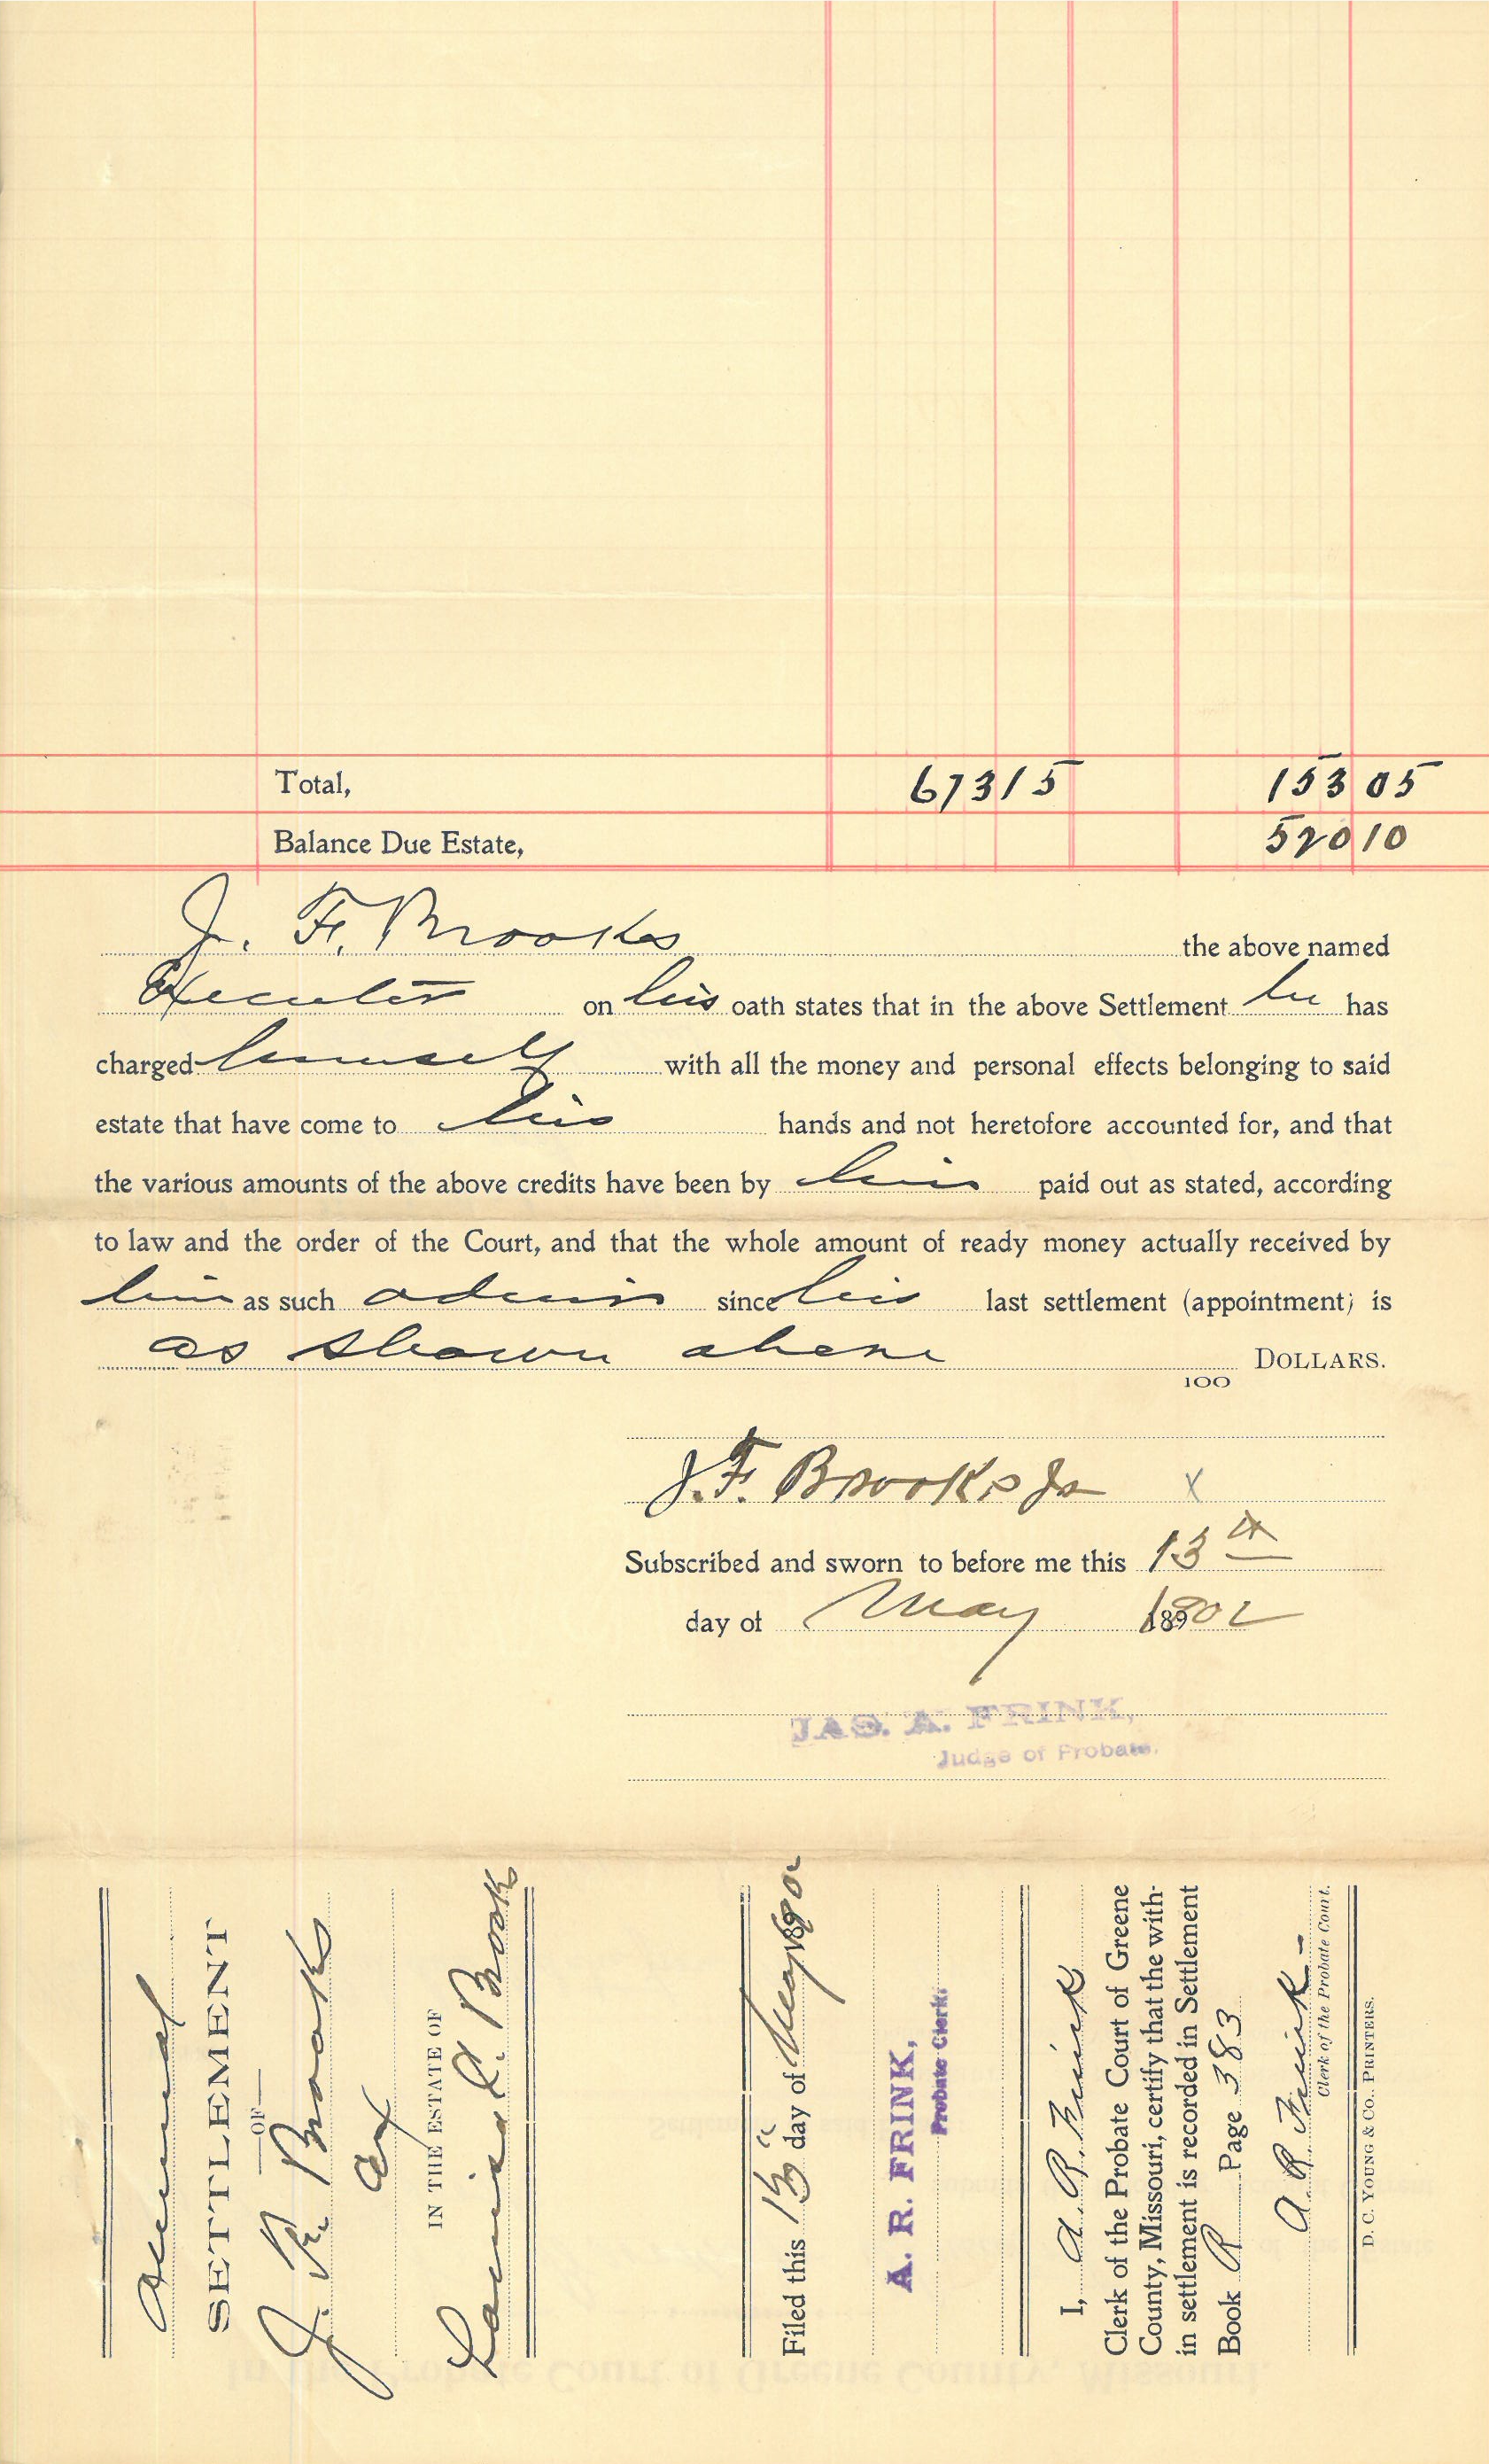 Total, 673 15 153 05
Balance Due Estate, 520 10
J. F. Brooks the above named
Executor on his oath states that in the above Settlement he has
charged himself with all the money and personal effects belonging to said
estate that have come to his hands and not heretofore accounted for, and that
the various amounts of the above credits have been by him paid out as stated, according
to law and the order of the Court, and that the whole amount of ready money actually received by
him as such admin since his last settlement (appointment) is
as shown above DOLLARS.
100
J. F. Brooks Jr x
Subscribed and sworn to before me this 13th
day of May 1902
JAS. A. FRINK,
Judge of Probate.
Annual
SETTLEMENT
—OF—
J. F. Brooks
Ex
IN THE ESTATE OF
Brooks
Filed this 13" day of May 1902
A. R. FRINK,
Probate Clerk.
I, A. R. Frink
Clerk of the Probate Court of Greene
County, Missouri, certify that the with-
in settlement is recorded in Settlement
Book R Page 383
A R Frink -
Clerk of the Probate Court.
D. C. YOUNG & CO., PRINTERS.